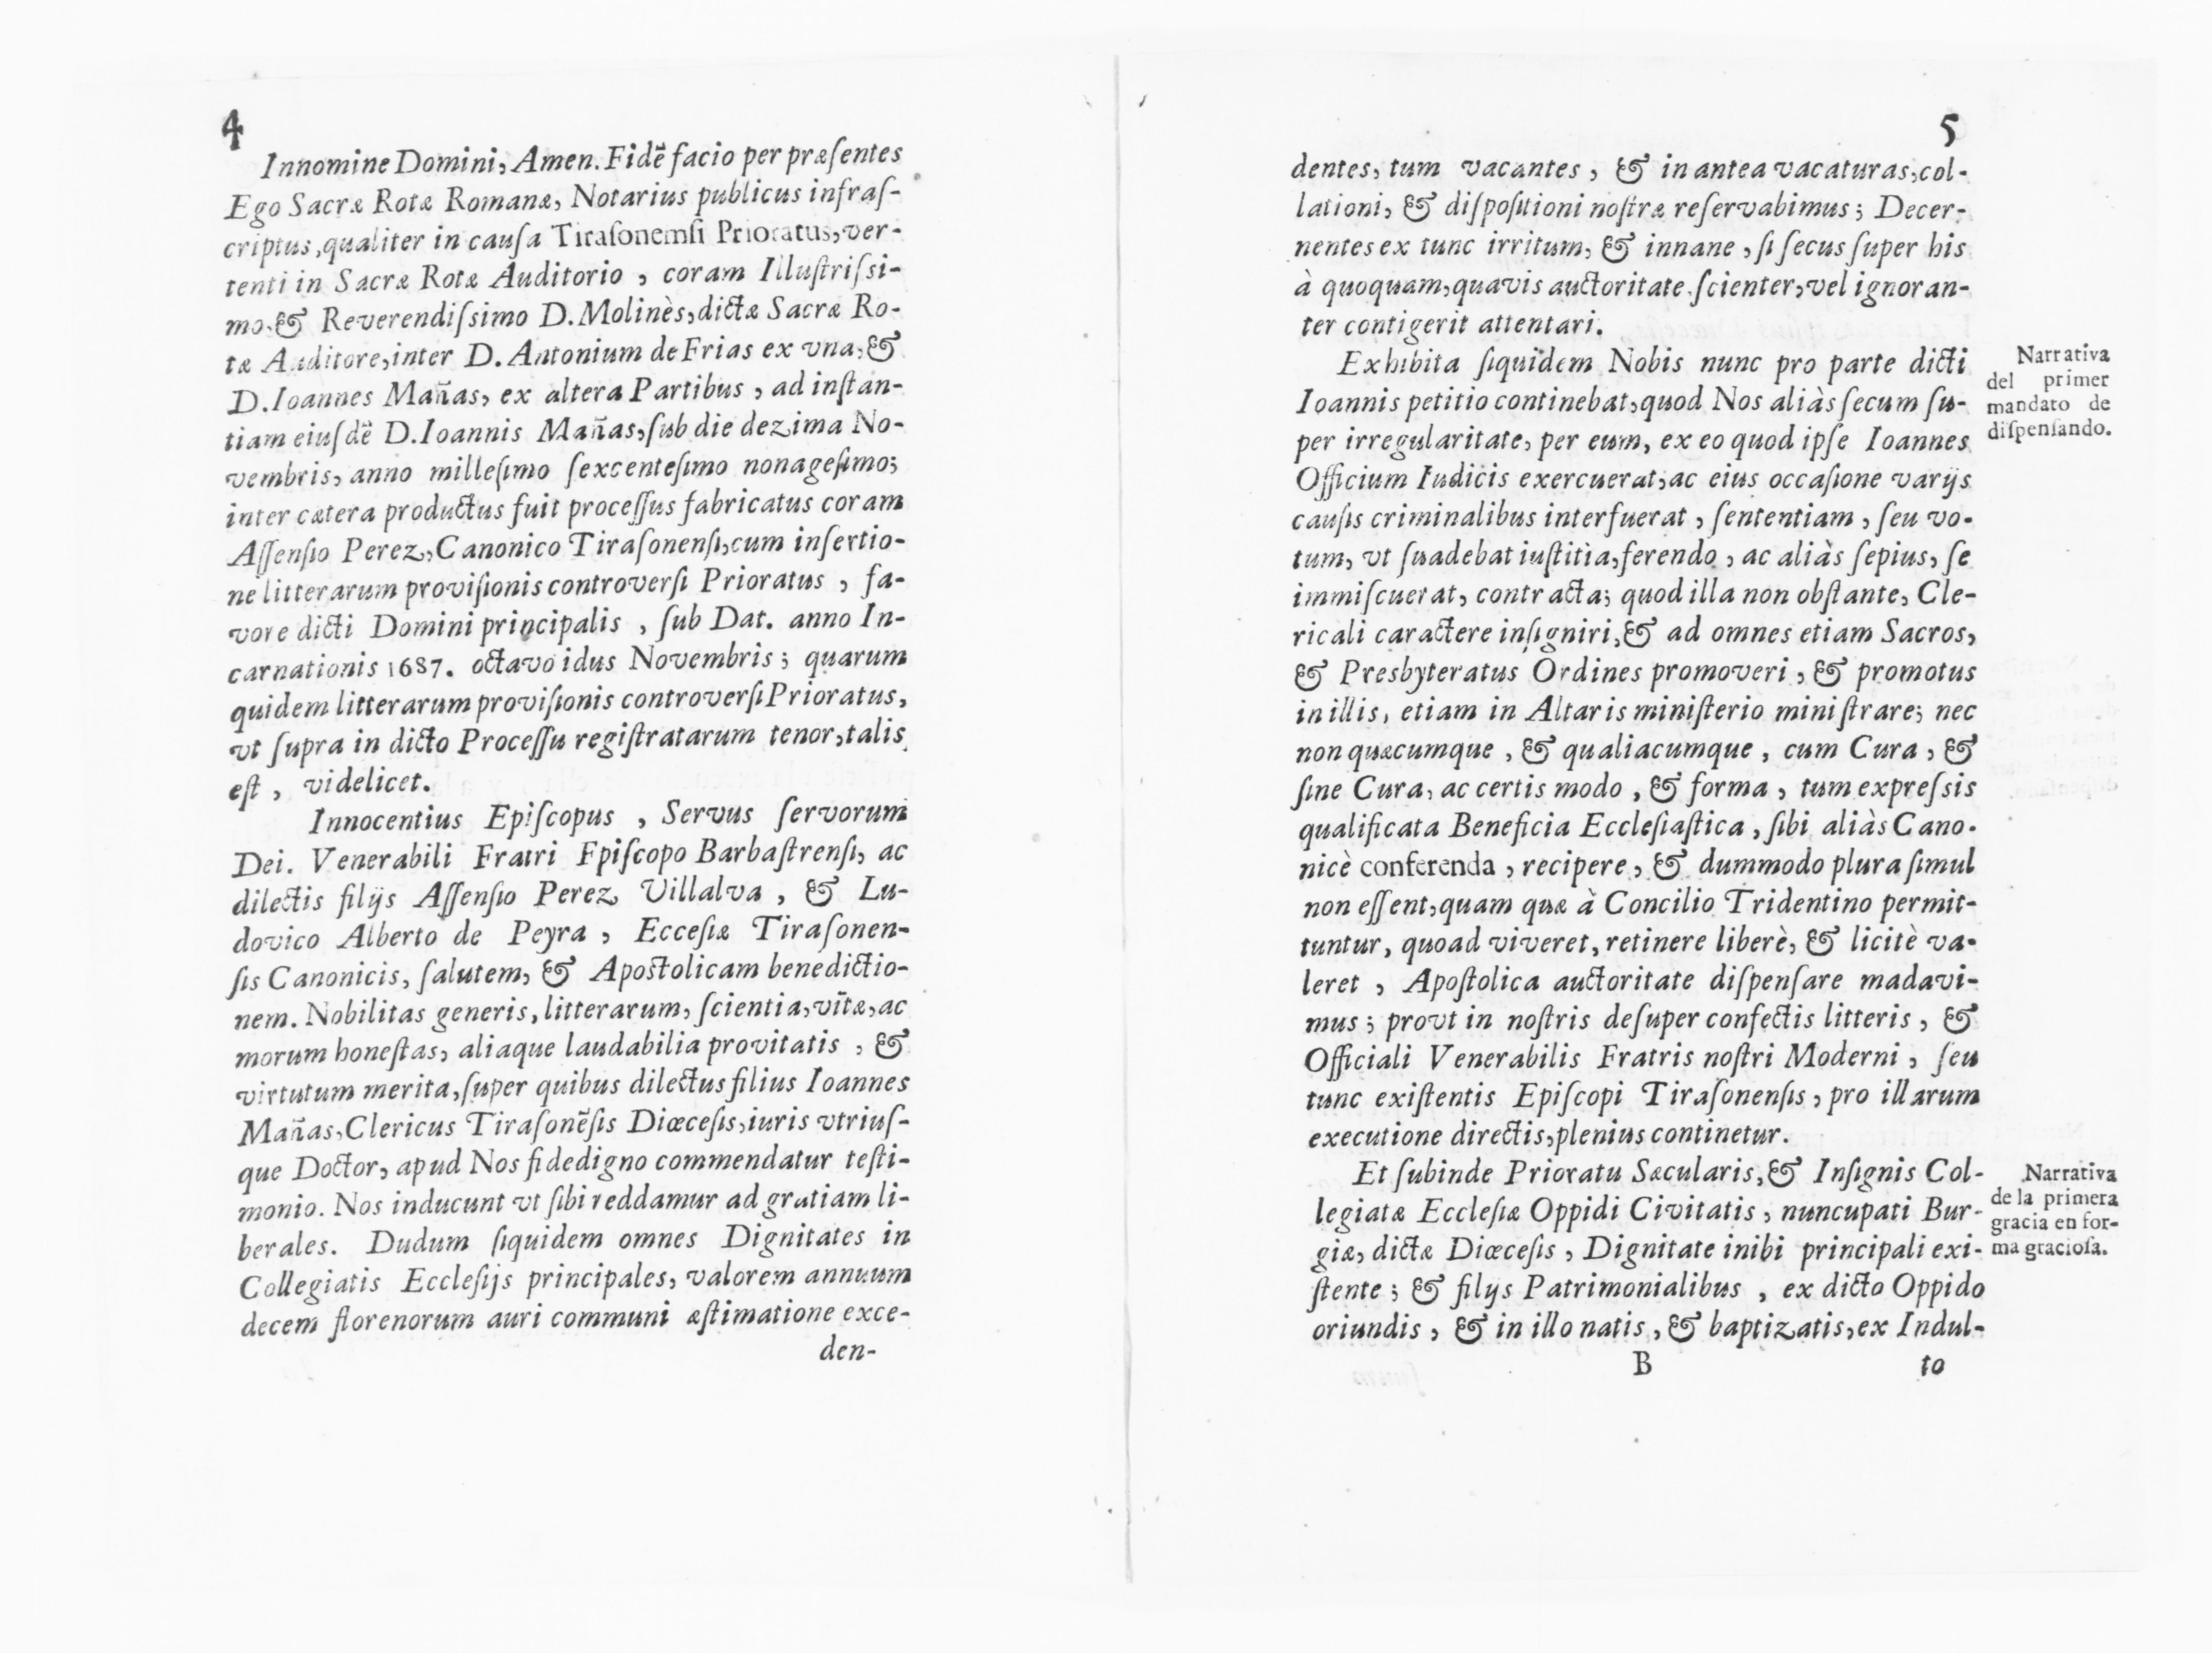 4
Innomine Domini, Amen. Fidẽ facio per præſentes
Ego Sacræ Rotæ Romanæ, Notarius publicus infraſ-
criptus, qualiter in cauſa Tiraſonemſi Prioratus, ver-
tenti in Sacræ Rotæ Auditorio , coram Illuſtriſsi-
mo, & Reverendiſsimo D. Molinès, dictæ Sacræ Ro-
tæ Auditore, inter D. Antonium de Frias ex vna, &
D. Ioannes Mañas, ex altera Partibus , ad inſtan-
tiam eiuſdẽ D. Ioannis Mañas, ſub die dezima No-
vembris, anno milleſimo ſexcenteſimo nonageſimo;
inter cætera productus fuit proceſſus fabricatus coram
Aſſenſio Perez, Canonico Tiraſonenſi, cum inſertio-
ne litterarum proviſionis controverſi Prioratus , fa-
vore dicti Domini principalis , ſub Dat. anno In-
carnationis 1687. octavo idus Novembris ; quarum
quidem litterarum proviſionis controverſi Prioratus,
vt ſupra in dicto Proceſſu regiſtratarum tenor, talis
eſt , videlicet.
Innocentius Epiſcopus , Servus ſervorum
Dei. Venerabili Fratri Fpiſcopo Barbaſtrenſi, ac
dilectis filijs Aſſenſio Perez Villalva , & Lu-
dovico Alberto de Peyra , Ecceſiæ Tiraſonen-
ſis Canonicis, ſalutem, & Apoſtolicam benedictio-
nem. Nobilitas generis, litterarum, ſcientia, vitæ, ac
morum honeſtas, aliaque laudabilia provitatis , &
virtutum merita, ſuper quibus dilectus filius Ioannes
Mañas, Clericus Tiraſonẽſis Diœceſis, iuris vtriuſ-
que Doctor, apud Nos fidedigno commendatur teſti-
monio. Nos inducunt vt ſibi reddamur ad gratiam li-
berales. Dudum ſiquidem omnes Dignitates in
Collegiatis Eccleſijs principales, valorem annuum
decem florenorum auri communi æſtimatione exce-
den-
5
dentes, tum vacantes , & in antea vacaturas, col-
lationi, & diſpoſitioni noſtræ reſervabimus ; Decer-
nentes ex tunc irritum, & innane , ſi ſecus ſuper his
à quoquam, quavis auctoritate ſcienter, vel ignoran-
ter contigerit attentari.
Exhibita ſiquidem Nobis nunc pro parte dicti
Ioannis petitio continebat, quod Nos aliàs ſecum ſu-
per irregularitate, per eum, ex eo quod ipſe Ioannes
Officium Iudicis exercuerat, ac eius occaſione varijs
cauſis criminalibus interfuerat , ſententiam , ſeu vo-
tum, vt ſuadebat iuſtitia, ferendo , ac aliàs ſepius, ſe
immiſcuerat, contracta; quod illa non obſtante, Cle-
ricali caractere inſigniri, & ad omnes etiam Sacros,
& Presbyteratus Ordines promoveri , & promotus
in illis, etiam in Altaris miniſterio miniſtrare; nec
non quæcumque , & qualiacumque , cum Cura , &
ſine Cura, ac certis modo , & forma , tum expreſsis
qualificata Beneficia Eccleſiaſtica , ſibi aliàs Cano-
nicè conferenda , recipere , & dummodo plura ſimul
non eſſent, quam quæ à Concilio Tridentino permit-
tuntur, quoad viveret, retinere liberè, & licitè va-
leret , Apoſtolica auctoritate diſpenſare madavi-
mus ; provt in noſtris deſuper confectis litteris , &
Officiali Venerabilis Fratris noſtri Moderni , ſeu
tunc exiſtentis Epiſcopi Tiraſonenſis , pro illarum
executione directis, plenius continetur.
Et ſubinde Prioratu Sæcularis, & Inſignis Col-
legiatæ Eccleſiæ Oppidi Civitatis , nuncupati Bur-
giæ, dictæ Diœceſis , Dignitate inibi principali exi-
ſtente ; & filijs Patrimonialibus , ex dicto Oppido
oriundis , & in illo natis , & baptizatis, ex Indul-
B
to
Narrativa
del primer
mandato de
diſpenſando.
Narrativa
de la primera
gracia en for-
ma gracioſa.